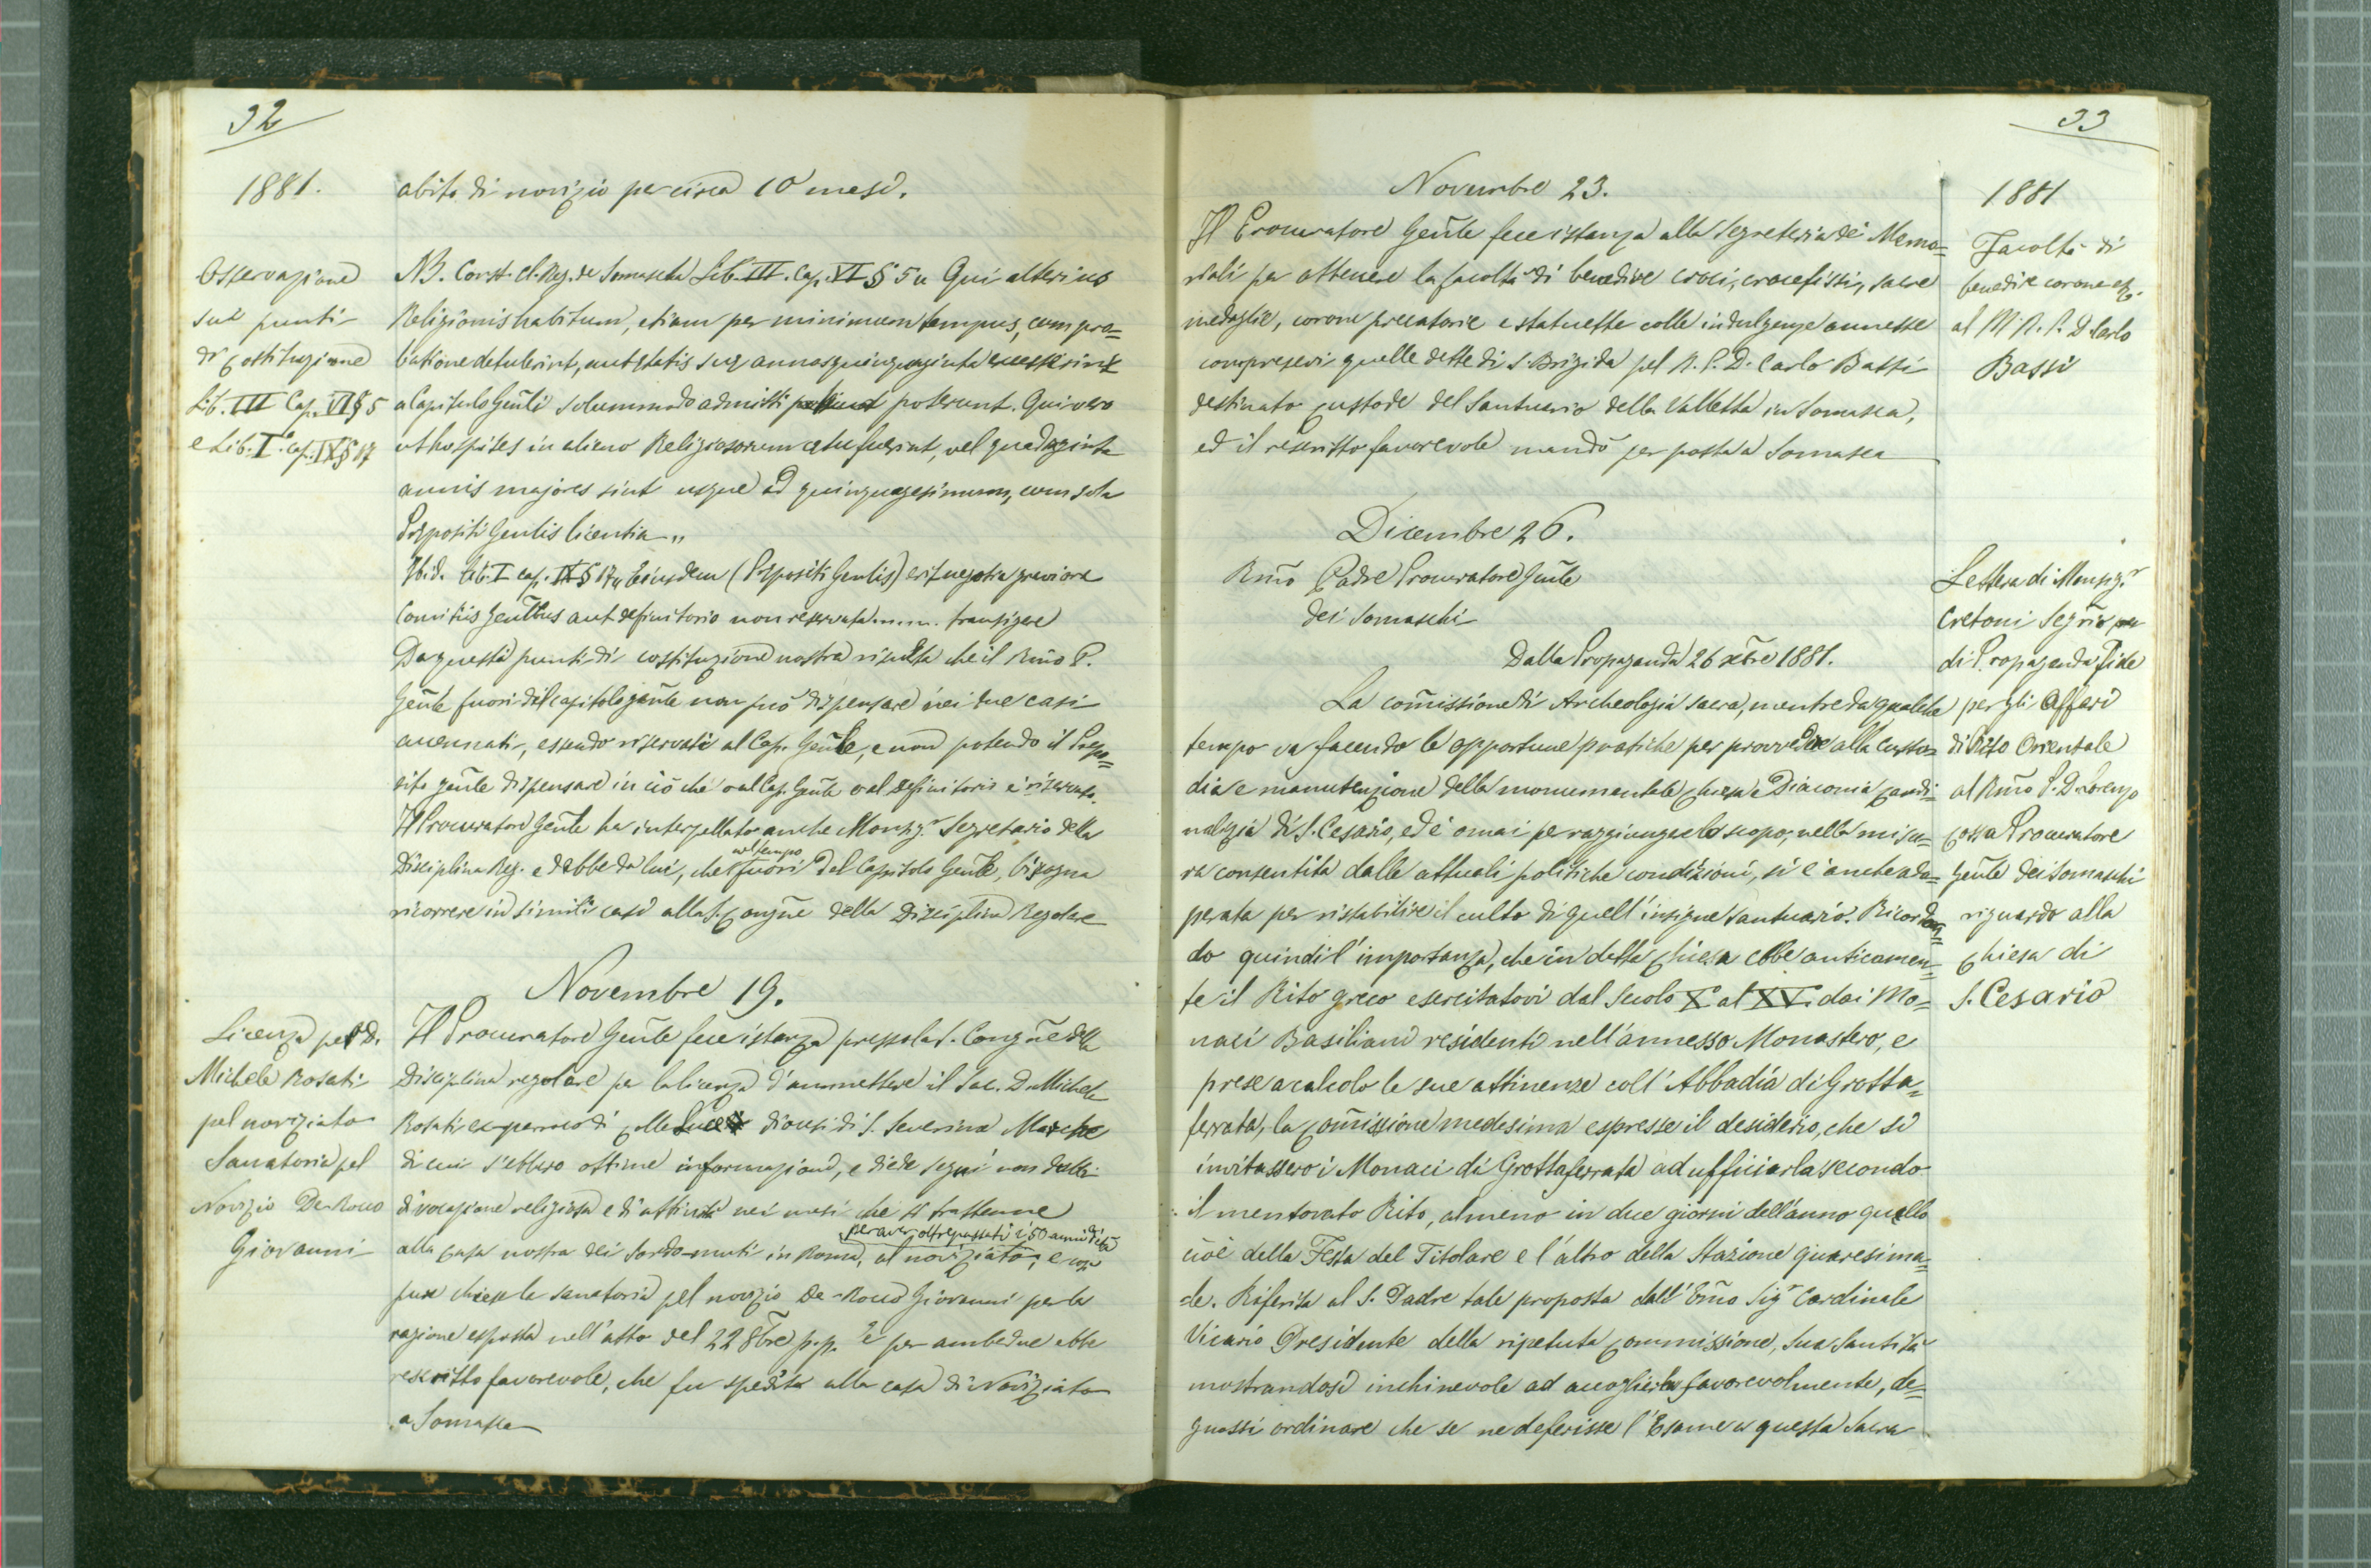 32
1881.
abito di novizio per circa 10 mesi.
Osservazione
sui punti
di costituzione
Lib. III Cap. VI § 5
e Lib. I. Cap. IX § 17
NB. Const. Cl. Reg. de Somascha Lib. III. Cap. VI § 5 „ Qui alterius
Religionis habitum, etiam per minimum tempus, cum pro=
batione detulerint, aut ętatis suę annos quinquaginta excesserint
a Capitulo Gen̄li solummodo admitti poterunt. Qui vero
ut hospites in alieno Religiosorum cetu fuerint, vel quadraginta
annis majores sint usque ad quinquagesimum, cum sola
Prępositi Gen̄lis licentia „
Ibid. Lib. I cap. IX § 17 „ Eiusdem (Prępositi Gen̄lis) erit negotia graviora
Comitiis Gen̄libus aut definitorio non reservata ..... transigere
Da questi punti di costituzione nostra risulta che il Rm̄o P.
Gen̄le fuori del capitolo gen̄le non può dispensare nei due casi
accennati, essendo riservati al Cap. Gen̄le, e non potendo il Prepo=
sito gen̄le dispensare in ciò che o al Cap. Gen̄le o al Definitorio è riservato.
Il Procuratore Gen̄le ha interpellato anche Monsig.r Segretario della
Disciplina Reg. ed ebbe da lui, che nel tempo fuori del Capitolo Gen̄le, bisogna
ricorrere in simili casi alla S. Congn̄e della Disciplina Regolare
Novembre 19.
Licenza pel D.
Michele Rosati
pel noviziato
Sanatoria pel
Novizio De-Rocco
Giovanni
Il Procuratore Gen̄le fece istanza presso la S. Congn̄e della
Disciplina regolare per la licenza d'ammettere il Sac. D. Michele
Rosati ex parroco di Colle Luce diocesi di S. Severino Marche
di cui s'ebbero ottime informazioni, e diede segni non dubbi
di vocazione religiosa e di attività nei mesi che si trattenne
alla casa nostra dei Sordo-muti in Roma, al noviziato, per aver oltrepassati i 50 anni d'età e così
pure chiese la sanatoria pel novizio De-Rocco Giovanni per la
ragione esposta nell'atto del 22 8bre p.p. E per ambedue ebbe
rescritto favorevole, che fu spedito alla casa di Noviziato
a Somasca
33
1881
Novembre 23.
Facoltà di
benedire corone etc.
al M. R. P. D. Carlo
Bassi
Il Procuratore Gen̄le fece istanza alla Segreteria dei Memo=
riali per ottenere la facoltà di benedire croci, crocefissi, sacre
medaglie, corone precatorie e statuette colle indulgenze annesse
compresevi quelle dette di S. Brigida pel R. P. D. Carlo Bassi
destinato custode del Santuario della Valletta in Somasca,
ed il rescritto favorevole mandò per posta a Somasca
Dicembre 26.
Lettera di Monsig.r
Cretoni Segrio
di Propaganda Fide
per gli Affari
di Rito Orientale
al Rm̄o P. D. Lorenzo
Cossa Procuratore
Gen̄le dei Somaschi
riguardo alla
Chiesa di
S. Cesario
Rm̄o Padre Procuratore Gen̄le
dei Somaschi
Dalla Propaganda 26 xbre 1881.
La com̄issione di Archeologia sacra, mentre da qualche
tempo va facendo le opportune pratiche per provvedere alla custo=
dia e manutenzione della monumentale Chiesa e Diaconia Cardi=
nalizia di S. Cesario, ed è omai per raggiungere lo scopo, nella misu=
ra consentita dalle attuali politiche condizioni, si è anche ado=
perata per ristabilire il culto di quell'insigne santuario. Ricordan=
do quindi l'importanza, che in detta Chiesa ebbe anticamen=
te il Rito greco esercitatovi dal secolo X al XV. dai Mo=
naci Basiliani residenti nell'annesso Monastero, e
prese a calcolo le sue attinenze coll'Abbadia di Grotta=
ferrata, la Com̄issione medesima espresse il desiderio, che si
invitassero i Monaci di Grottaferrata ad ufficiarla secondo
il mentovato Rito, almeno in due giorni dell'anno quello
cioè della Festa del Titolare e l'altro della Stazione quaresima=
le. Riferita al S. Padre tale proposta dall'Em̄o Sigr Cardinale
Vicario Presidente della ripetuta Commissione, Sua Santità
mostrandosi inchinevole ad accoglierla favorevolmente, de=
gnossi ordinare che se ne deferisse l'Esame a questa Sacra